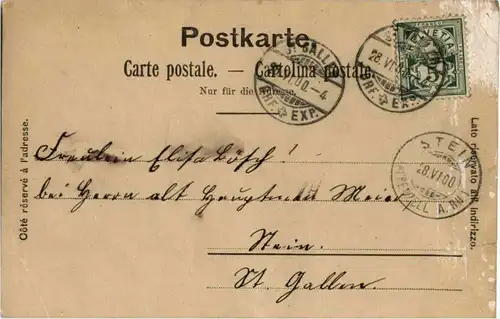 Postkarte.
Carte postale. — Cartolina postale.
Nur für die Adresse.
HELVETIA
5
ST. GALLEN
28.VI.00.–4
BRF. EXP.
28.VI.00
BRF. EXP.
Côté réservé à l'adresse.
Lato riservato all' indirizzo.
STEIN
28.VI.00
(APPENZELL A. RH.)
Fräulein Elisa Bösch!
bei Herrn alt Hauptmann Meier
Stein.
St. Gallen.